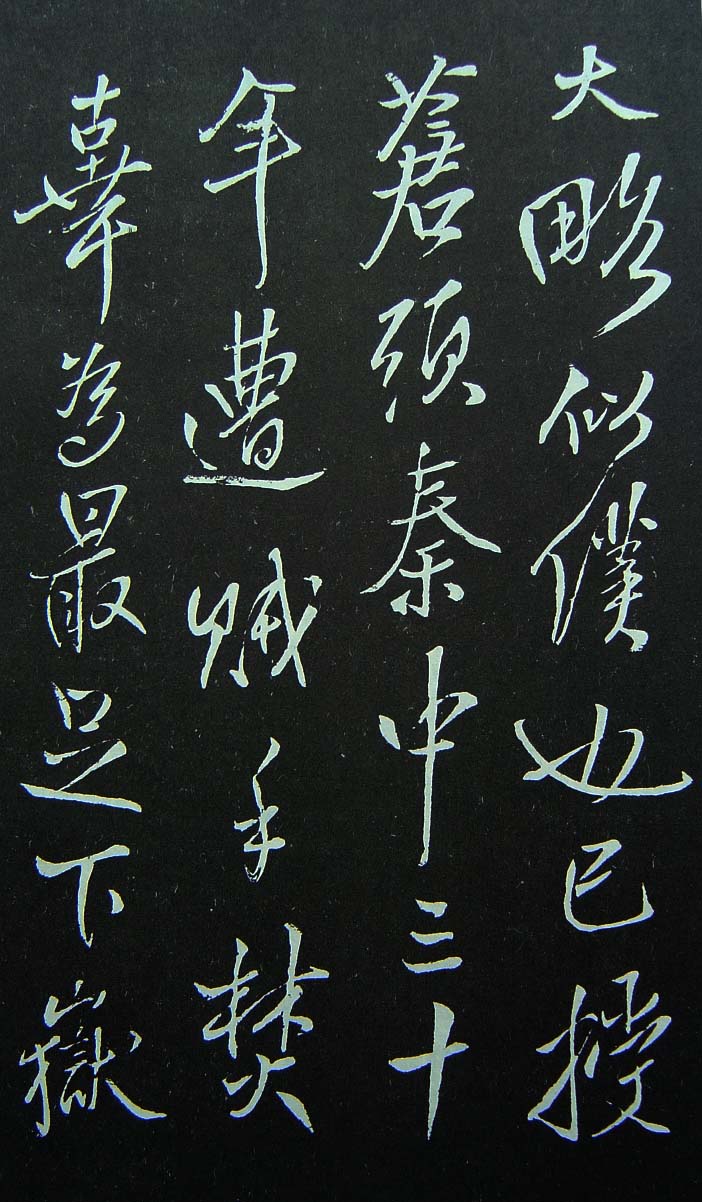 大略似僕也已授
蒼頭秦中三十
年遭賊手焚
棄為最足下嶽